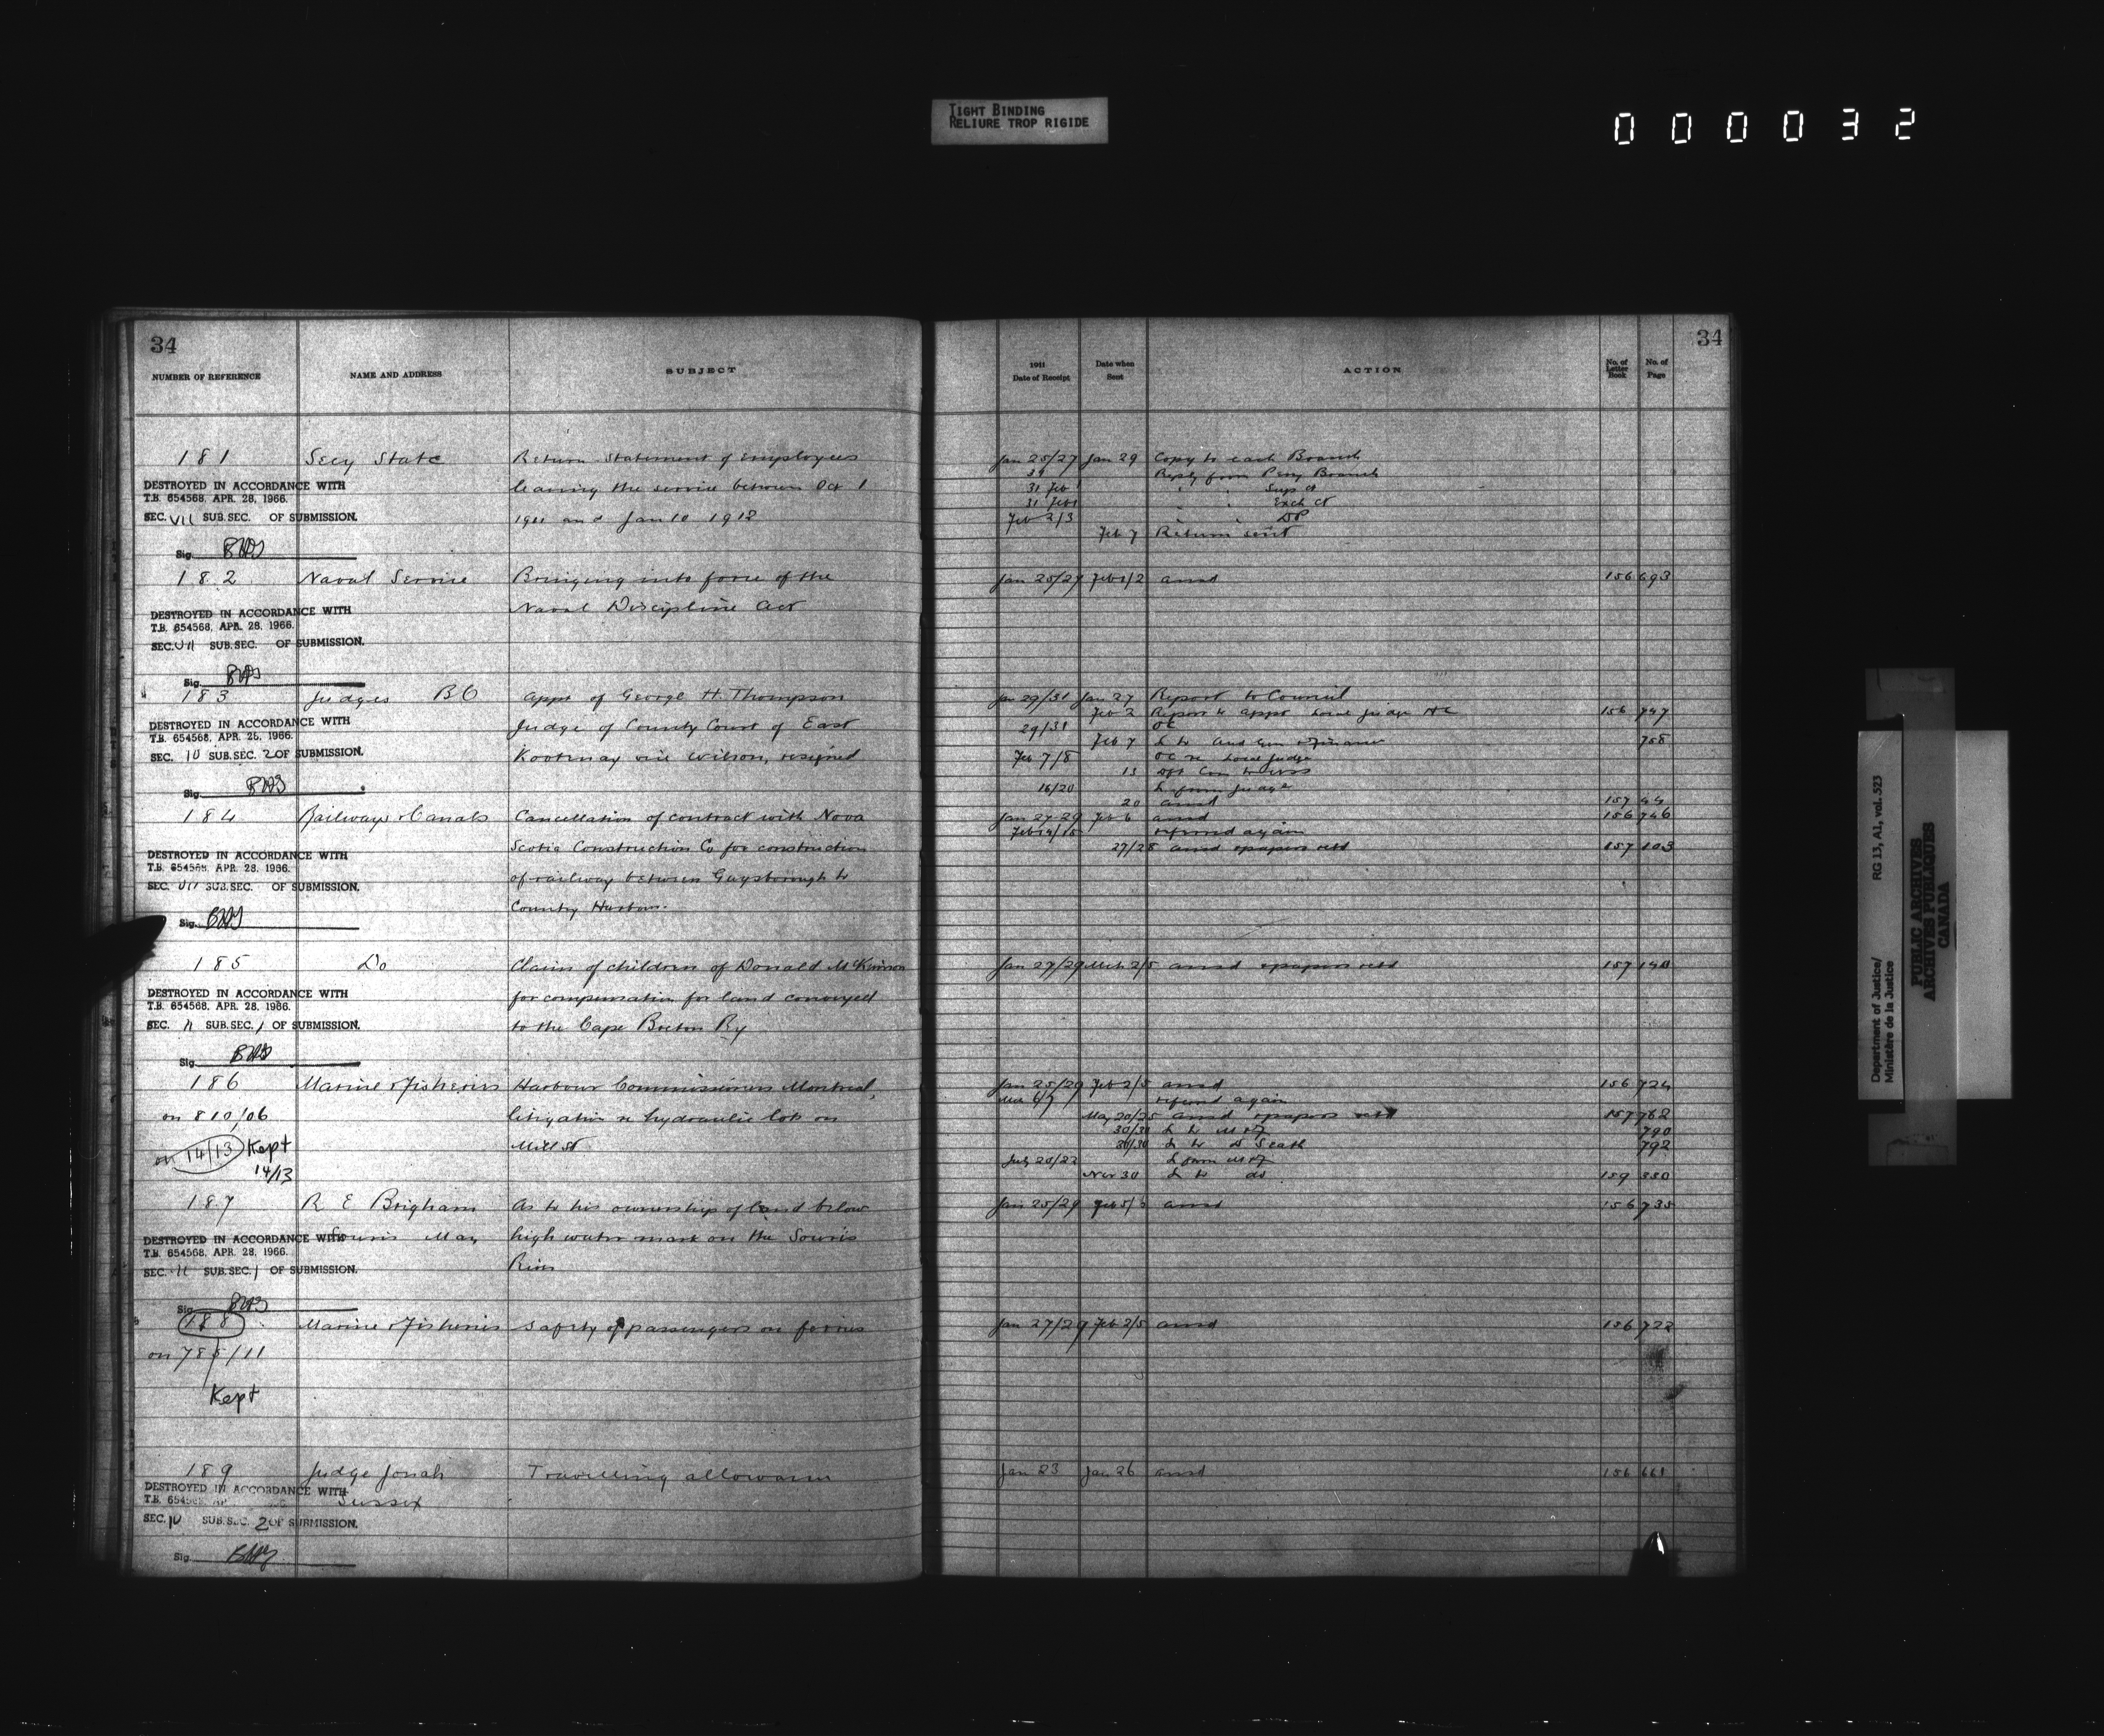 TIGHT BINDING
RELIURE TROP RIGIDE
000032
34
NUMBER OF REFERENCE NAME AND ADDRESS SUBJECT
181 Secy State Return Statement of employees
DESTROYED IN ACCORDANCE WITH
T.B. 654568, APR. 28, 1966.
leaving the service between Oct 1
SEC. VII SUB.SEC. OF SUBMISSION.
1911 and Jan 10 1912
Sig.
182 Naval Service Bringing into force of the
Naval Discipline Act
DESTROYED IN ACCORDANCE WITH
T.B. 654568, APR. 28, 1966.
SEC. VII SUB.SEC. OF SUBMISSION.
Sig.
183 Judges BC Appt of George H. Thompson
DESTROYED IN ACCORDANCE WITH
T.B. 654568, APR. 28, 1966.
Judge of County Court of East
SEC. 10 SUB.SEC. 2 OF SUBMISSION.
Kootenay vice Wilson, resigned
Sig.
184 Railways & Canals Cancellation of contract with Nova
Scotia Construction Co for construction
DESTROYED IN ACCORDANCE WITH
T.B. 654568, APR. 28, 1966.
of railway between Guysborough to
SEC. VII SUB.SEC. OF SUBMISSION.
Country Harbour.
Sig.
185 Do Claim of children of Donald McKinnon
DESTROYED IN ACCORDANCE WITH
T.B. 654568, APR. 28, 1966.
for compensation for land conveyed
SEC. 11 SUB.SEC. 1 OF SUBMISSION.
to the Cape Breton Ry
Sig.
186 Marine & Fisheries Harbour Commissioners Montreal,
on 810/06 litigation re hydraulic lots on
on 14/13 Kept Mill St
14/13
187 R E Brigham As to his ownership of land below
Souris Man high water mark on the Souris
DESTROYED IN ACCORDANCE WITH
T.B. 654568, APR. 28, 1966.
SEC. 11 SUB.SEC. 1 OF SUBMISSION.
River
Sig.
188 Marine & Fisheries Safety of passengers on ferries
on 785/11
Kept
189 Judge Jonah Travelling allowance
DESTROYED IN ACCORDANCE WITH
Sussex
SEC. 10 SUB.SEC. 2 OF SUBMISSION.
Sig.
34
1911
Date of Receipt Date when Sent ACTION No. of Letter Book No. of Page
Jan 25/27 Jan 29 Copy to each Branch
Reply from Peny Branch
31 Feb 1 " " Sup Ct
31 Feb 1 " " Exch Ct
Feb 2/3 " " DP
Feb 7 Return sent
Jan 25/27 Feb 1/2 ansd 156 693
Jan 29/31 Jan 27 Report to Council
Feb 2 Report to appt Local Judge 156 747
29/31 OC
Feb 7 L to Aud Gen & Finance 758
Feb 7/8 OC re Local Judge
13
16/20 L from Judge
20 ansd 157 44
Jan 27/29 Feb 6 ansd 156 746
Feb 14/15 referred again
27/28 ansd & papers retd 157 103
Jan 27/29 Mch 2/5 ansd & papers retd 157 140
Jan 25/29 Feb 2/5 ansd 156 724
referred again
May 20/25 ansd & papers retd 157 762
30/30 L to M of F 790
30/30 L to 792
July 20/22 L from M of F
Nov 30 L to do 159 350
Jan 25/29 Feb 5/ ansd 156 735
Jan 27/29 Feb 2/5 ansd 156 722
Jan 23 Jan 26 ansd 156 661
Department of Justice/
Ministère de la Justice
RG 13, A1, vol. 523
PUBLIC ARCHIVES
ARCHIVES PUBLIQUES
CANADA